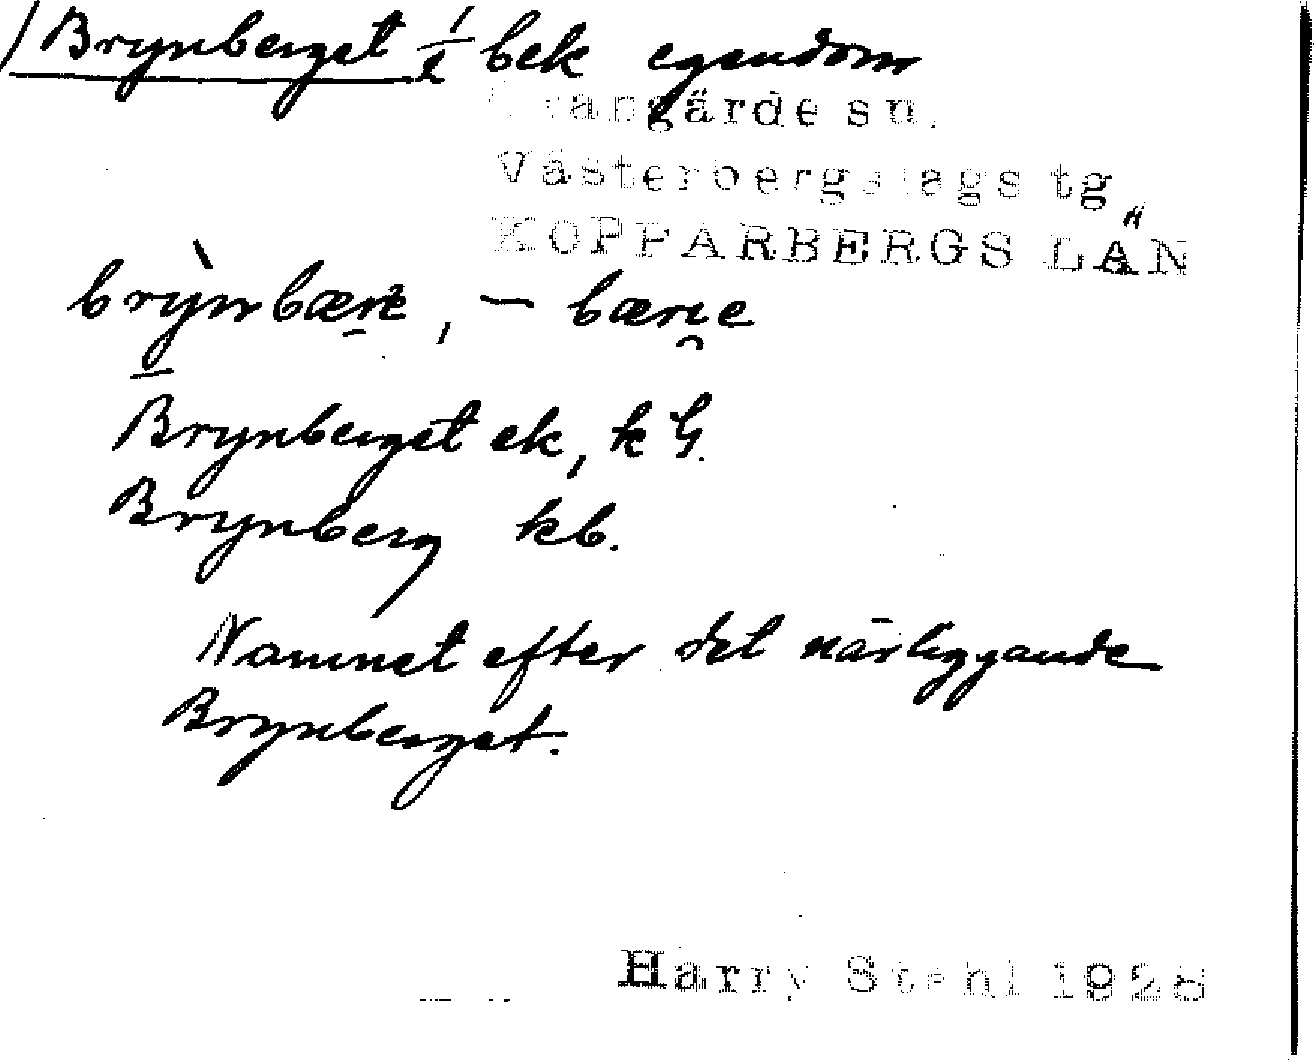 Brynberget 1/2 bek egendom
gärde sn.
Västerbergslags tg
KOPPARBERGS LÄN
Brynberget ek, k G.
Brynberg kb.
Namnet efter det närliggande
Brynberget.
Harry Ståhl 1928